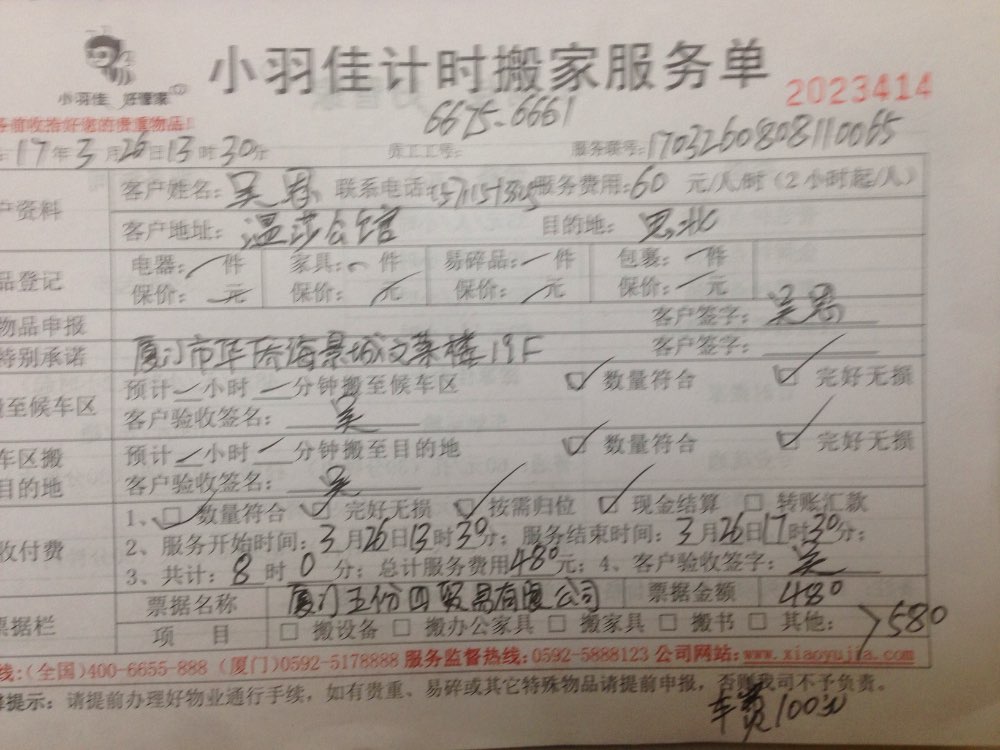 小羽佳计时搬家服务单
小羽佳 好管家
2023414
务前收拾好您的贵重物品!
6675-6661
17年3月26日13时30分 员工工号: 服务联号:1703260808110065
户资料 客户姓名:吴 联系电话: 服务费用:60 元/人/时(2小时起/人)
客户地址:温莎公馆 目的地:思北
品登记 电器: 件 家具: 件 易碎品: 件 包裹: 件
保价: 元 保价: 元 保价: 元 保价: 元
物品申报 客户签字:吴
特别承诺 厦门市华侨海景城文莱楼19F 客户签字:
至候车区 预计 小时 分钟搬至候车区 ☑ 数量符合 ☑ 完好无损
客户验收签名:吴
车区搬 预计 小时 分钟搬至目的地 ☑ 数量符合 ☑ 完好无损
目的地 客户验收签名:吴
1、☑ 数量符合 ☑ 完好无损 ☑ 按需归位 ☑ 现金结算 □ 转账汇款
收付费 2、服务开始时间:3月26日13时30分;服务结束时间:3月26日17时30分;
3、共计:8时0分;总计服务费用480元;4、客户验收签字:吴
票据名称 厦门五份四贸易有限公司 票据金额 480
票据栏 项 目 □ 搬设备 □ 搬办公家具 □ 搬家具 □ 搬书 □ 其他: 580
线:(全国)400-6655-888 (厦门)0592-5178888 服务监督热线:0592-5888123 公司网站:www.xiaoyujia.com
提示:请提前办理好物业通行手续,如有贵重、易碎或其它特殊物品请提前申报,否则我司不予负责。
车费100元